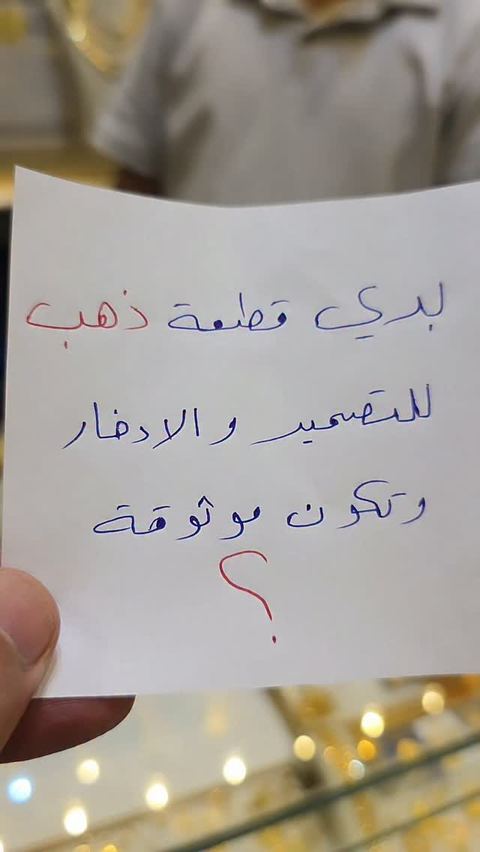 بدي قطعة ذهب
للتصميد والادخار
وتكون موثوقة
؟